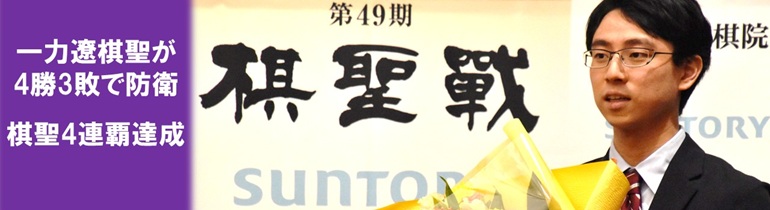 一力遼棋聖が
4勝3敗で防衛
棋聖4連覇達成
第49期
棋聖戰
棋院
SUNTORY
SUNTORY